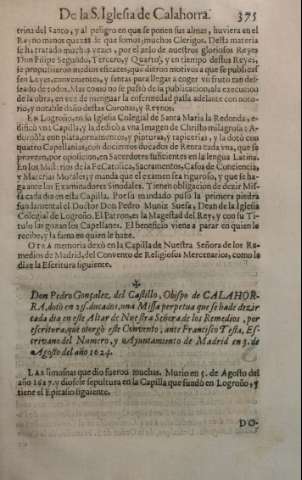 De la S. Iglesia de Calahorra. 375
trina del Santo, y al peligro en que se ponen sus almas, huviera en el
Rey no menos que nos de que somos, muchos Clerigos. Desta materia
se ha tratado muchas vezes, por el zelo de nuestros gloriosos Reyes
Don Felipe Segundo, Tercero, y Quarto, y en tiempo destos Reyes,
se propusieron medios eficazes, que dieron motivos a que se publicas-
sen Leyes, conveniento, y santas para llegar a coger vn fruto tan des-
seado de todos. Mas como no se passò de la publicacion, a la execucion
de la obra, en vez de menguar la enfermedad passa adelante con noto-
rio, y notable daño destas Coronas, y Reynos.
En Logroño, en la Iglesia Colegial de Santa Maria la Redonda, e-
dificò vna Capilla, y la dedicò a vna Imagen de Christo milagrosa: A-
dornòla con plata, ornamentos, y pinturas, y tapicerias, y la dotò con
quatro Capellanias, con docientos ducados de Renta cada vna, que se
proveen, por oposicion, en Sacerdotes suficientes en la lengua Latina.
En los Misterios de la Fè Catolica, Sacramentos, Casos de Conciencia,
y Materias Morales y manda que el examen sea riguroso, y que se ha-
ga ante los Examinadores Sinodales. Tienen obligacion de dezir Mis-
sa cada dia en esta Capilla. Por su mandado puso la primera piedra
fundamental el Doctor Don Pedro Muñiz Suesa, Dean de la Iglesia
Colegial de Logroño. El Patron es la Magestad del Rey, y con su Ti-
tulo las gozan los Capellanes. El beneficio viene a parar en quien lo
recibe, y la fama en quien le haze.
OTRA memoria dexò en la Capilla de Nuestra Señora de los Re-
medios de Madrid, del Convento de Religiosos Mercenarios, como lo
dize la Escritura siguiente.
✠
Don Pedro Gonçalez del Castillo, Obispo de CALAHOR-
RA, dotò en 25. ducados, vna Missa perpetua que se ha de dezir
cada dia en este Altar de Nuestra Señora de los Remedios, por
escritura, que otorgò este Convento, ante Francisco Testa, Es-
crivano del Numero, y Ayuntamiento de Madrid en 3. de
Agosto del año 1624.
LAS limosnas que diò fueron muchas. Murio en 5. de Agosto del
año 1627. y diosele sepultura en la Capilla que fundò en Logroño, y
tiene el Epitafio siguiente.
DO-